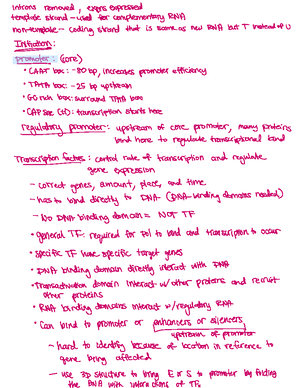 introns removed, exons expressed
template strand - used for complementary RNA
non-template - coding strand that is same as new RNA but T instead of U
Initiation:
promoter: (core)
• CAAT box: -80 bp, increases promoter efficiency
• TATA box: -25 bp upstream
• GC rich box: surround TATA box
• CAP site (+1): transcription starts here
regulatory promoter: upstream of core promoter, many proteins
bind here to regulate transcriptional
Transcription factors: control rate of transcription and regulate
gene expression
- correct genes, amount, place, and time
- has to bind directly to DNA (DNA-binding domains needed)
- No DNA binding domain = NOT TF
• general TF: required for Pol to bind and transcription to occur
• specific TF have specific target genes
• DNA binding domain directly interact with DNA
• Transactivation domain interact w/ other proteins and recruit
other proteins
• RNA binding domains interact w/ regulatory RNA
• Can bind to promoter or enhancers or silencers
upstream of promoter
- hard to identify because of location in reference to
gene being affected
- use 3D structure to bring E or S to promoter by folding
the DNA with interactions of TFs